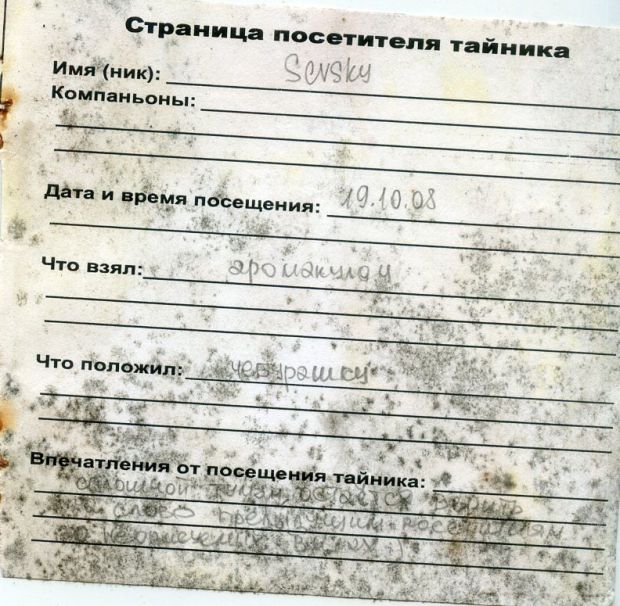 Страница посетителя тайника
Имя (ник): Sevsky
Компаньоны:
Дата и время посещения: 19.10.08
Что взял: аромакулон
Что положил: чебурашку
Впечатления от посещения тайника:
сплошной туман, остаётся верить
слово предыдущим посетителям
о